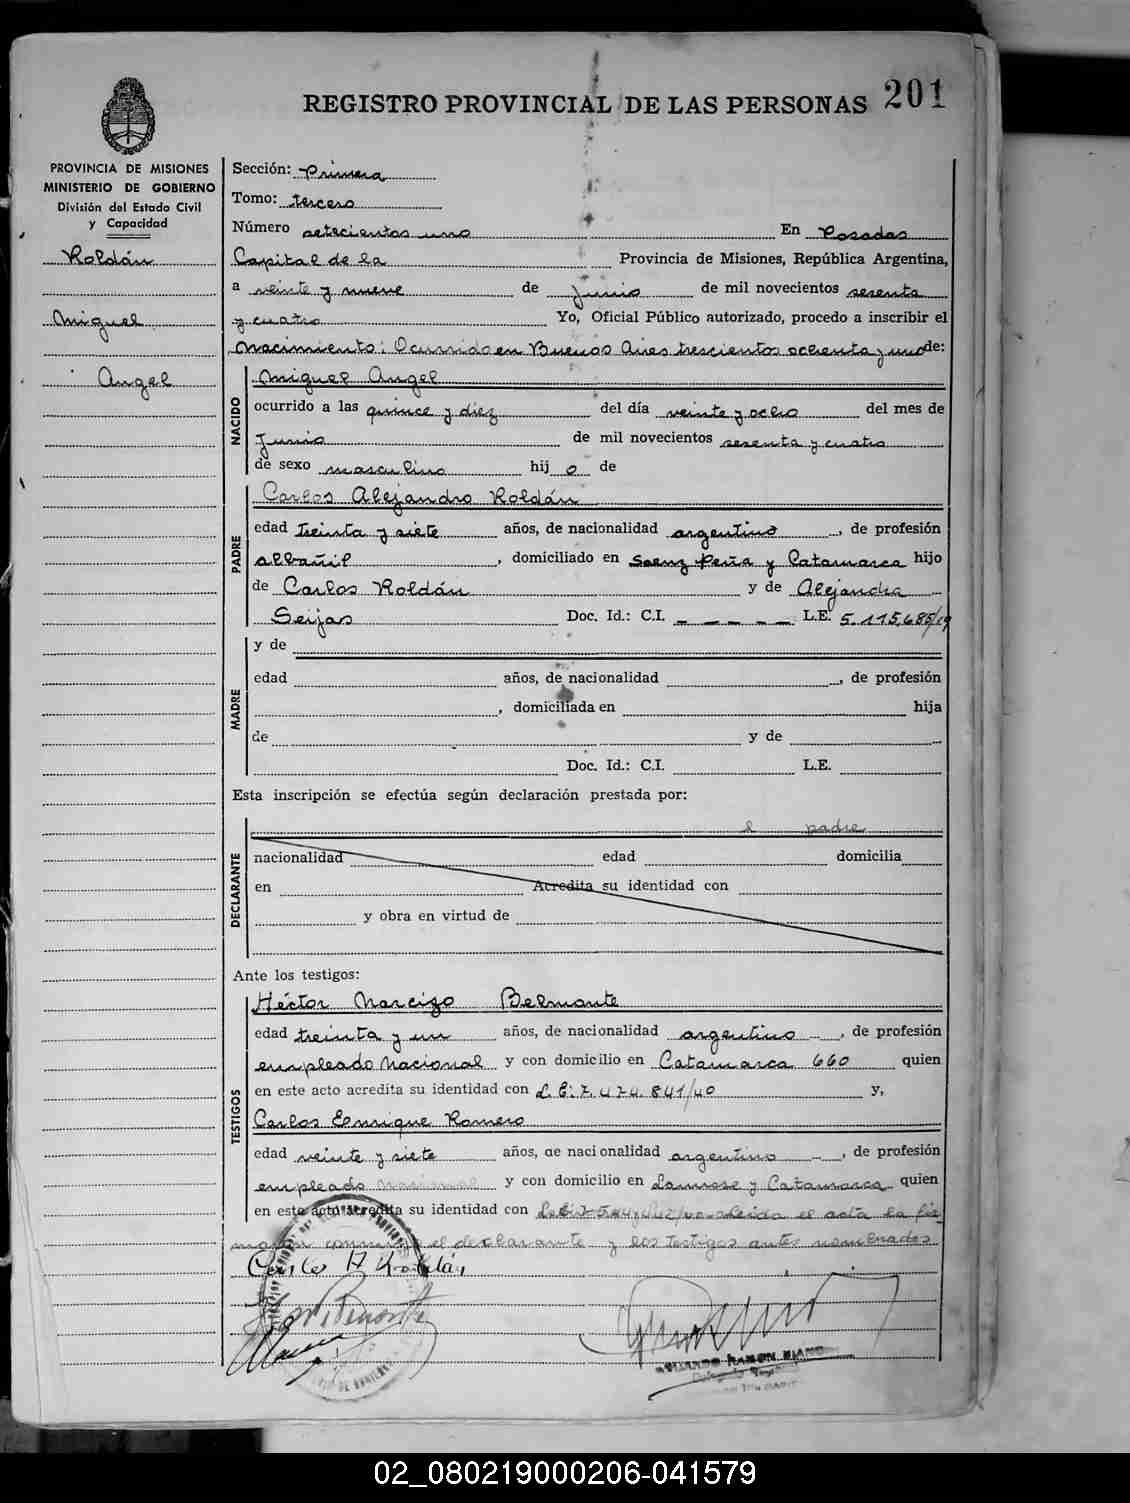 REGISTRO PROVINCIAL DE LAS PERSONAS 201
PROVINCIA DE MISIONES
MINISTERIO DE GOBIERNO
División del Estado Civil
y Capacidad
Roldán
Miguel
Angel
Sección: Primera
Tomo: tercero
Número setecientos uno En Posadas
Capital de la Provincia de Misiones, República Argentina,
a veinte y nueve de Junio de mil novecientos sesenta
y cuatro Yo, Oficial Público autorizado, procedo a inscribir el
nacimiento: Ocurrido en Buenos Aires trescientos ochenta y uno de:
NACIDO
Miguel Angel
ocurrido a las quince y diez del día veinte y ocho del mes de
Junio de mil novecientos sesenta y cuatro
de sexo masculino hij o de
PADRE
Carlos Alejandro Roldán
edad treinta y siete años, de nacionalidad argentino, de profesión
albañil, domiciliado en Saenz Peña y Catamarca hijo
de Carlos Roldán y de Alejandra
Seijas Doc. Id.: C.I. _ _ _ _ _ L.E. 5.115.685/
MADRE
y de
edad años, de nacionalidad , de profesión
, domiciliada en hija
de y de
Doc. Id.: C.I. L.E.
Esta inscripción se efectúa según declaración prestada por:
DECLARANTE
el padre
nacionalidad edad domicilia
en Acredita su identidad con
y obra en virtud de
Ante los testigos:
TESTIGOS
Héctor Narcizo Belmonte
edad treinta y un años, de nacionalidad argentino, de profesión
empleado Nacional y con domicilio en Catamarca 660 quien
en este acto acredita su identidad con L.E: 7.474.841/40 y,
Carlos Enrique Romero
edad veinte y siete años, de nacionalidad argentino, de profesión
empleado Nacional y con domicilio en Lanusse y Catamarca quien
en este acto acredita su identidad con leida el acta la fir
maron conmigo el declarante y los testigos antes nombrados
Carlos A Roldán
RAMON
02_080219000206-041579